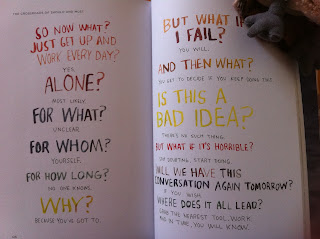 SO NOW WHAT?
JUST GET UP AND
WORK EVERY DAY?
YES.
ALONE?
MOST LIKELY.
FOR WHAT?
UNCLEAR.
FOR WHOM?
YOURSELF.
FOR HOW LONG?
NO ONE KNOWS.
WHY?
BECAUSE YOU'VE GOT TO.
BUT WHAT IF
I FAIL?
YOU WILL.
AND THEN WHAT?
YOU GET TO DECIDE IF YOU KEEP GOING.
IS THIS A
BAD IDEA?
THERE'S NO SUCH THING.
BUT WHAT IF IT'S HORRIBLE?
STOP DOUBTING, START DOING.
WILL WE HAVE THIS
CONVERSATION AGAIN TOMORROW?
IF YOU WISH.
WHERE DOES IT ALL LEAD?
GRAB THE NEAREST TOOL, WORK,
AND IN TIME, YOU WILL KNOW.